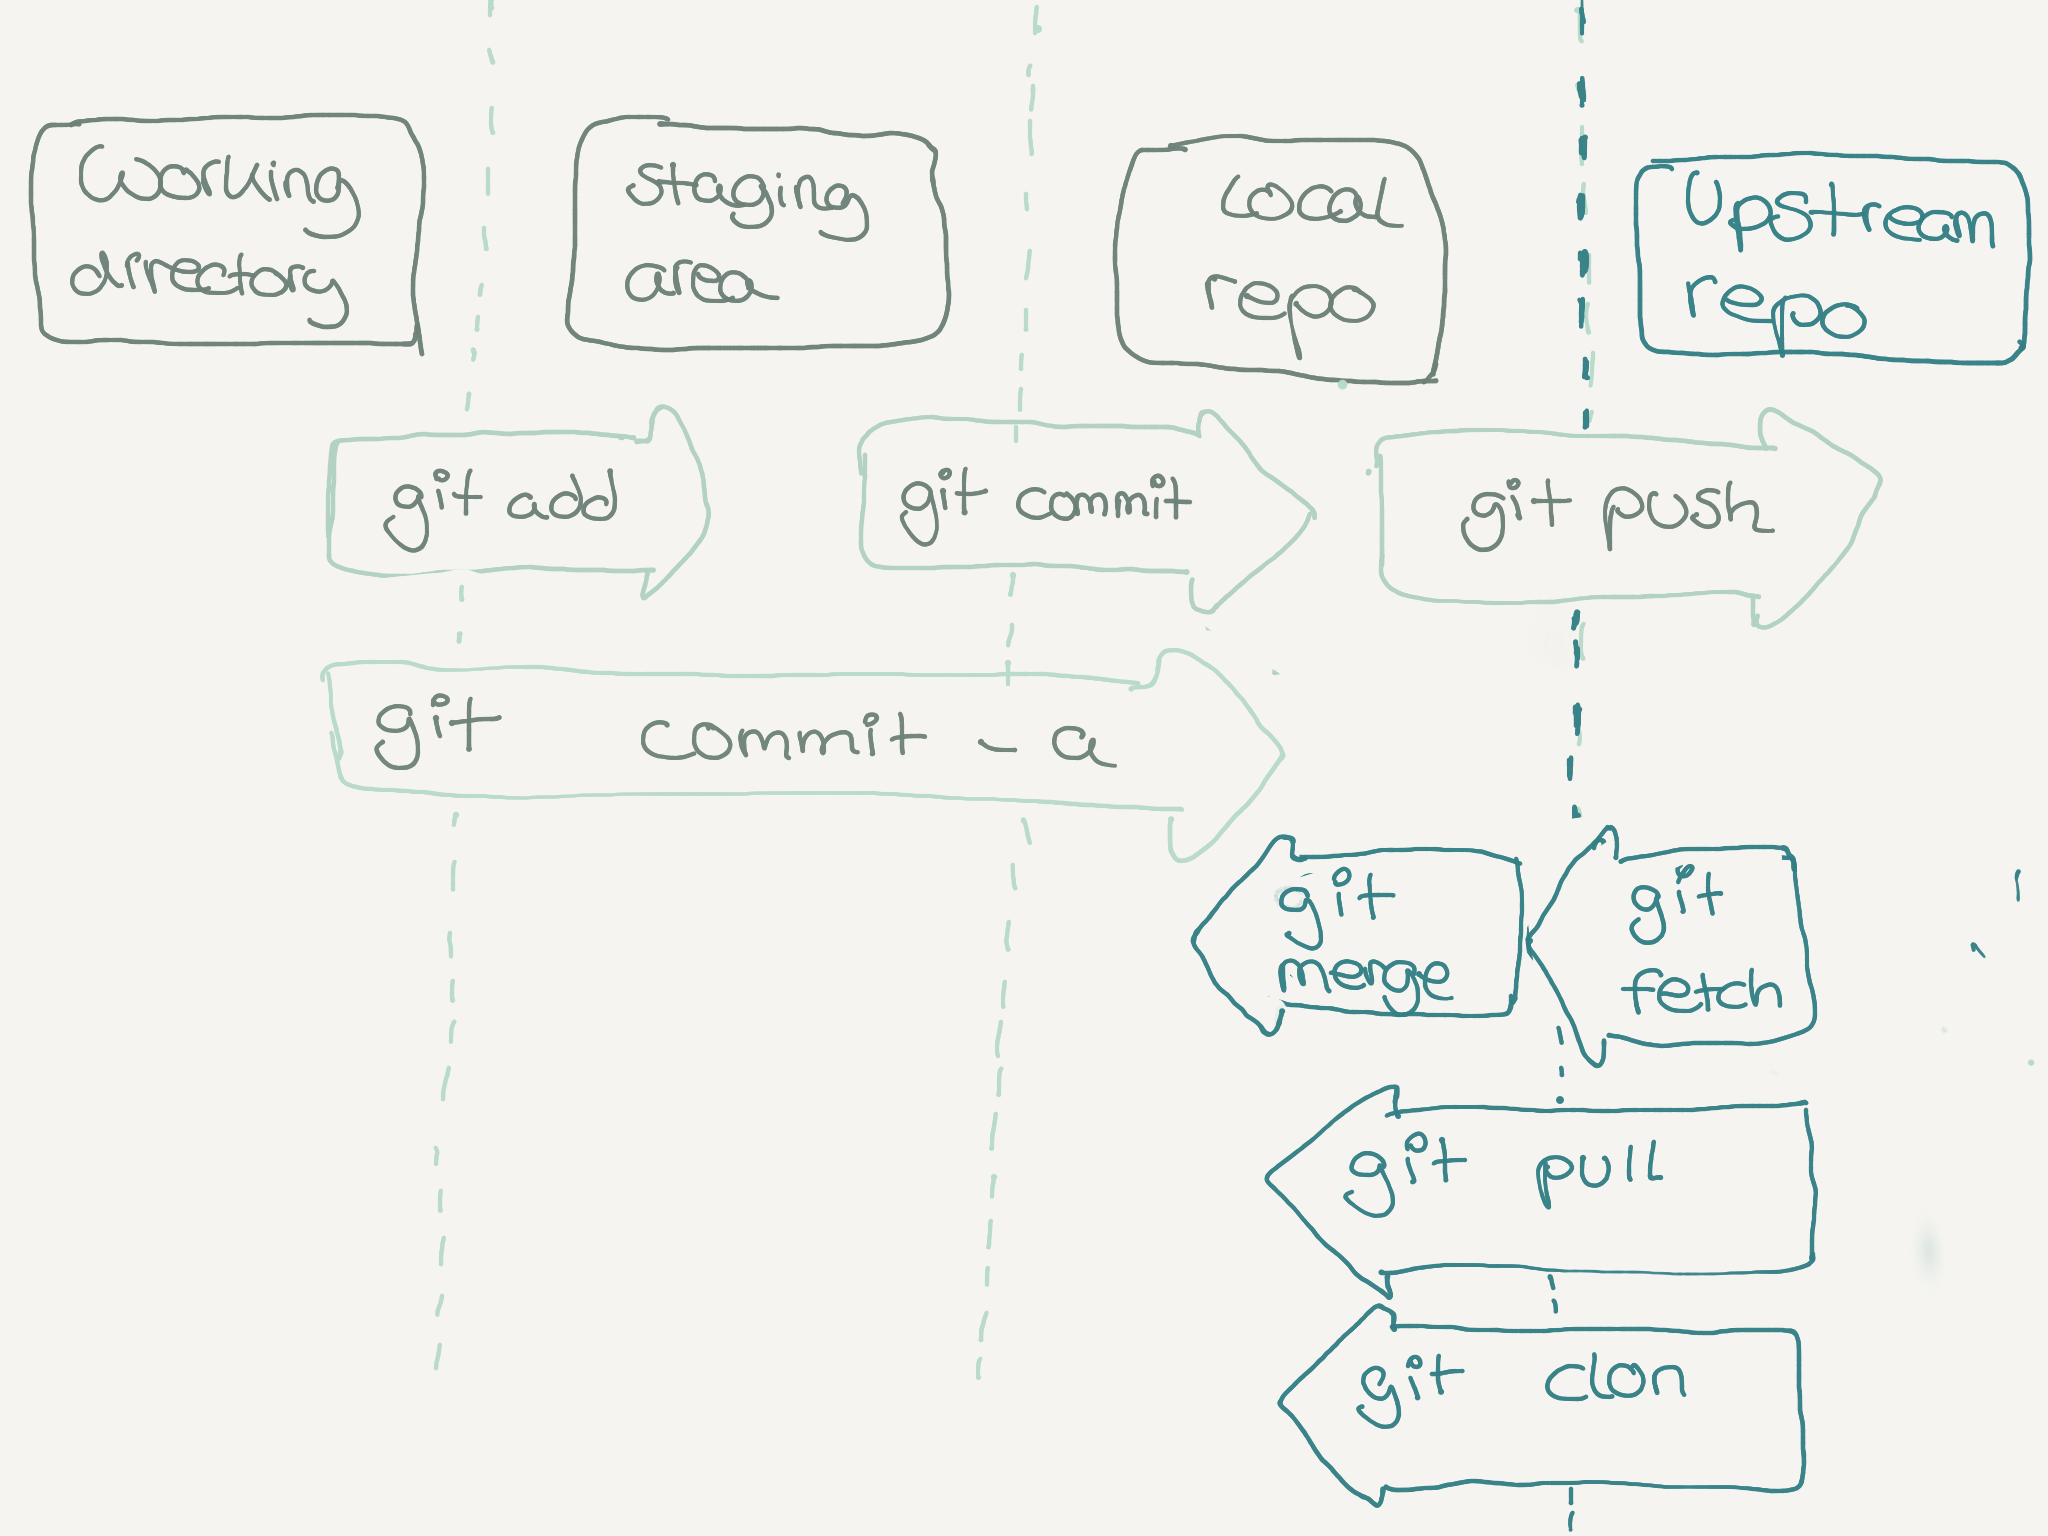 Working
dirrectory
staging
area
Local
repo
Upstream
repo
git add
git commit
git push
git commit - a
git
merge
git
fetch
git pull
git clon